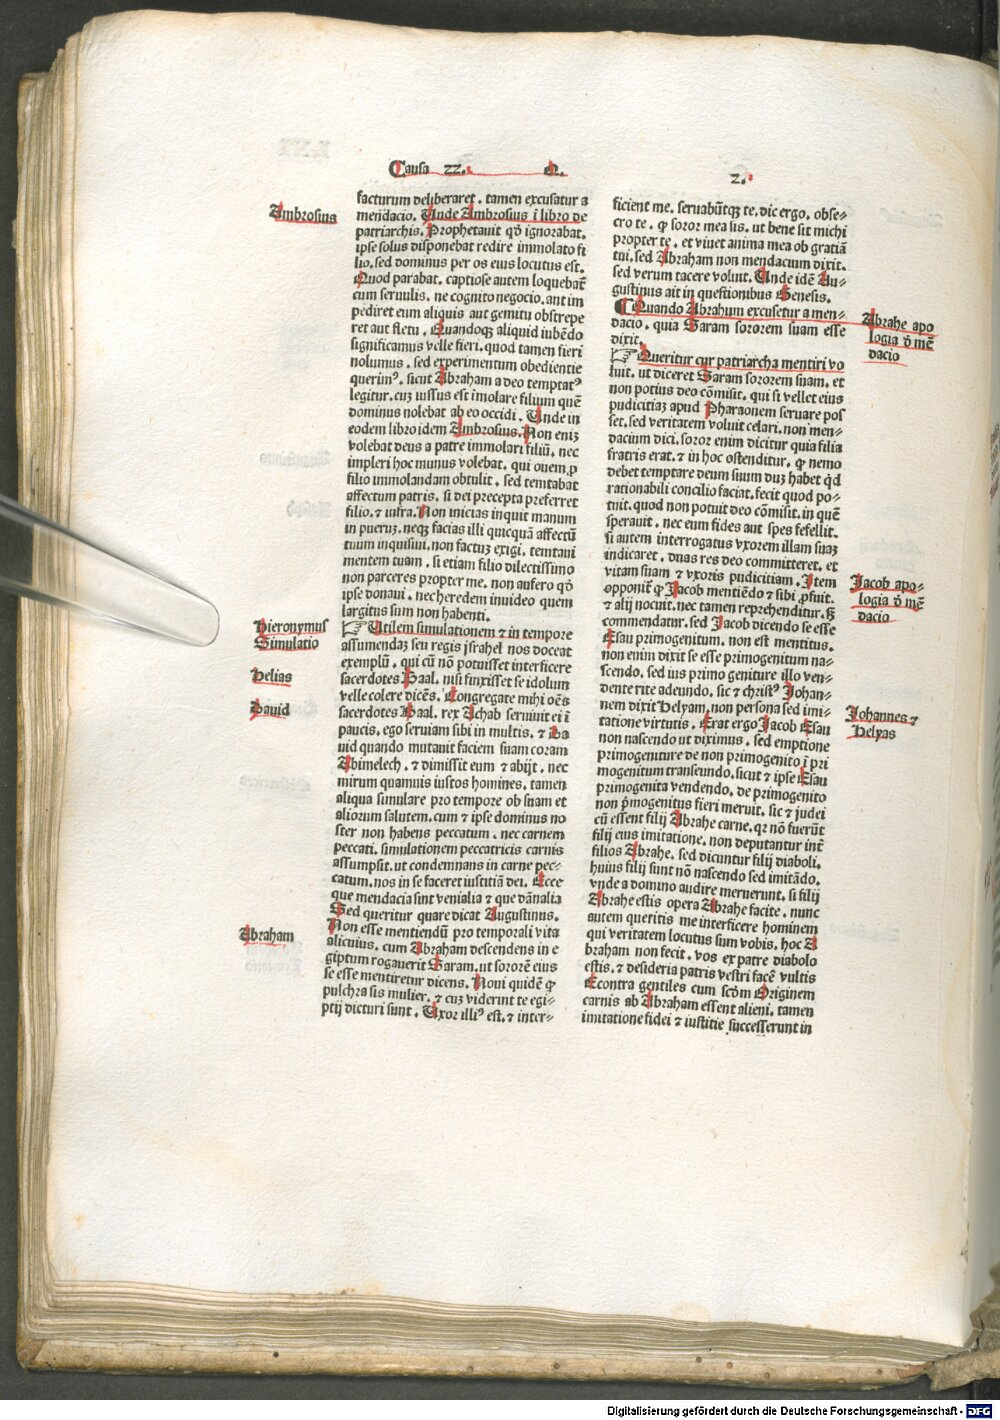 Causa ZZ. Q. Z.
Ambrosius
facturum deliberaret, tamen excusatur a
mendacio. Unde Ambrosius ĩ libro de
patriarchis. Prophetauit qḋ ignorabat.
ipse solus disponebat redire immolato fi
lio. sed dominus per os eius locutus est.
Quod parabat. captiose autem loquebat᷑
cum seruulis. ne cognito negocio. aut im
pediret eum aliquis aut gemitu obstrepe
ret aut fletu. Quandoqꝫ aliquid iubẽdo
significamus velle fieri. quod tamen fieri
nolumus. sed experimentum obedientie
querimꝰ. sicut Abraham a deo temptatꝰ
legitur. cuꝫ iussus est ĩmolare filium quẽ
dominus nolebat ab eo occidi. Unde in
eodem libro idem Ambrosius. Non eniꝫ
volebat deus a patre immolari filiũ. nec
impleri hoc munus volebat. qui ouem ꝓ
filio immolandam obtulit. sed temtabat
affectum patris. si dei precepta preferret
filio. ⁊ infra. Non inicias inquit manum
in pueruꝫ. neqꝫ facias illi quicquã affectũ
tuum inquisiui. non factuꝫ exigi. temtaui
mentem tuam. si etiam filio dilectissimo
non parceres propter me. non aufero qḋ
ipse donaui. nec heredem inuideo quem
largitus sum non habenti.
Hieronymus
Simulatio
☞ Utilem simulationem ⁊ in tempore
assumendaꝫ seu regis jsrahel nos doceat
exemplũ. qui cũ nõ potuisset interficere
Helias
sacerdotes Baal. nisi finxisset se idolum
velle colere dicẽs. Congregate mihi oẽs
Dauid
sacerdotes Baal. rex Achab seruiuit ei ĩ
paucis. ego seruiam sibi in multis. ⁊ Da
uid quando mutauit faciem suam coram
Abimelech. ⁊ dimissit eum ⁊ abijt. nec
mirum quamuis iustos homines. tamen
aliqua simulare pro tempore ob suam et
aliorum salutem. cum ⁊ ipse dominus no
ster non habens peccatum. nec carnem
peccati. simulationem peccatricis carnis
assumpsit. ut condemnans in carne pec-
catum. nos in se faceret iustitiã dei. Ecce
que mendacia sunt venialia ⁊ que dãnalia
Sed queritur quare dicat Augustinus.
Non esse mentiendũ pro temporali vita
Abraham
alicuius. cum Abraham descendens in e
giptum rogauerit Saram. ut sororẽ eius
se esse mentiretur dicens. Noui quidẽ ꝙ
pulchra sis mulier. ⁊ cuꝫ viderint te egi-
ptij dicturi sunt. Uxor illiꝰ est. ⁊ inter-
ficient me. seruabũtqꝫ te. dic ergo. obse-
cro te. ꝙ soror mea sis. ut bene sit michi
propter te. et viuet anima mea ob gratiã
tui. sed Abraham non mendacium dixit.
sed verum tacere voluit. Unde idẽ Au-
gustinus ait in questionibus Genesis.
¶ Quando Abrahum excusetur a men-
dacio. quia Saram sororem suam esse
dixit.
Abrahe apo
logia ꝺ̄ mẽ
dacio
☞ Queritur cur patriarcha mentiri vo
luit. ut diceret Saram sororem suam. et
non potius deo cõmisit. qui si vellet eius
pudicitiaꝫ apud Pharaonem seruare pos
set. sed veritatem voluit celari. non men-
dacium dici. soror enim dicitur quia filia
fratris erat. ⁊ in hoc ostenditur. ꝙ nemo
debet temptare deum suum duꝫ habet q̇d
rationabili concilio faciat. fecit quod po-
tuit. quod non potuit deo cõmisit. in quẽ
sperauit. nec eum fides aut spes fefellit.
si autem interrogatus vxorem illam suaꝫ
indicaret. duas res deo committeret. et
vitam suam ⁊ vxoris pudicitiam. Item
opponit᷑ ꝙ Jacob mentiẽdo ⁊ sibi ꝓfuit.
⁊ alij nocuit. nec tamen reprehenditur. sꝫ
commendatur. sed Jacob dicendo se esse
Esau primogenitum. non est mentitus.
non enim dixit se esse primogenitum na-
scendo. sed ius primo geniture illo ven-
dente rite adeundo. sic ⁊ christꝰ Johan-
nem dixit Helyam. non persona sed imi-
tatione virtutis. Erat ergo Jacob Esau
non nascendo ut diximus. sed emptione
primogeniture de non primogenito ĩ pri
mogenitum transeundo. sicut ⁊ ipse Esau
primogenita vendendo. de primogenito
non p̃mogenitus fieri meruit. sic ⁊ judei
cũ essent filij Abrahe carne. qr nõ fuerũt
filij eius imitatione. non deputantur int̃
filios Abrahe. sed dicuntur filij diaboli.
huius filij sunt nõ nascendo sed imitãdo.
vnde a domino audire meruerunt. si filij
Abrahe estis opera Abrahe facite. nunc
autem queritis me interficere hominem
qui veritatem locutus sum vobis. hoc A
braham non fecit. vos ex patre diabolo
estis. ⁊ desideria patris vestri facẽ vultis
Econtra gentiles cum scḋm Originem
carnis ab Abraham essent alieni. tamen
imitatione fidei ⁊ iustitie successerunt in
Jacob apo-
logia ꝺ̄ mẽ
dacio
Johannes ⁊
Helyas
Digitalisierung gefördert durch die Deutsche Forschungsgemeinschaft - DFG